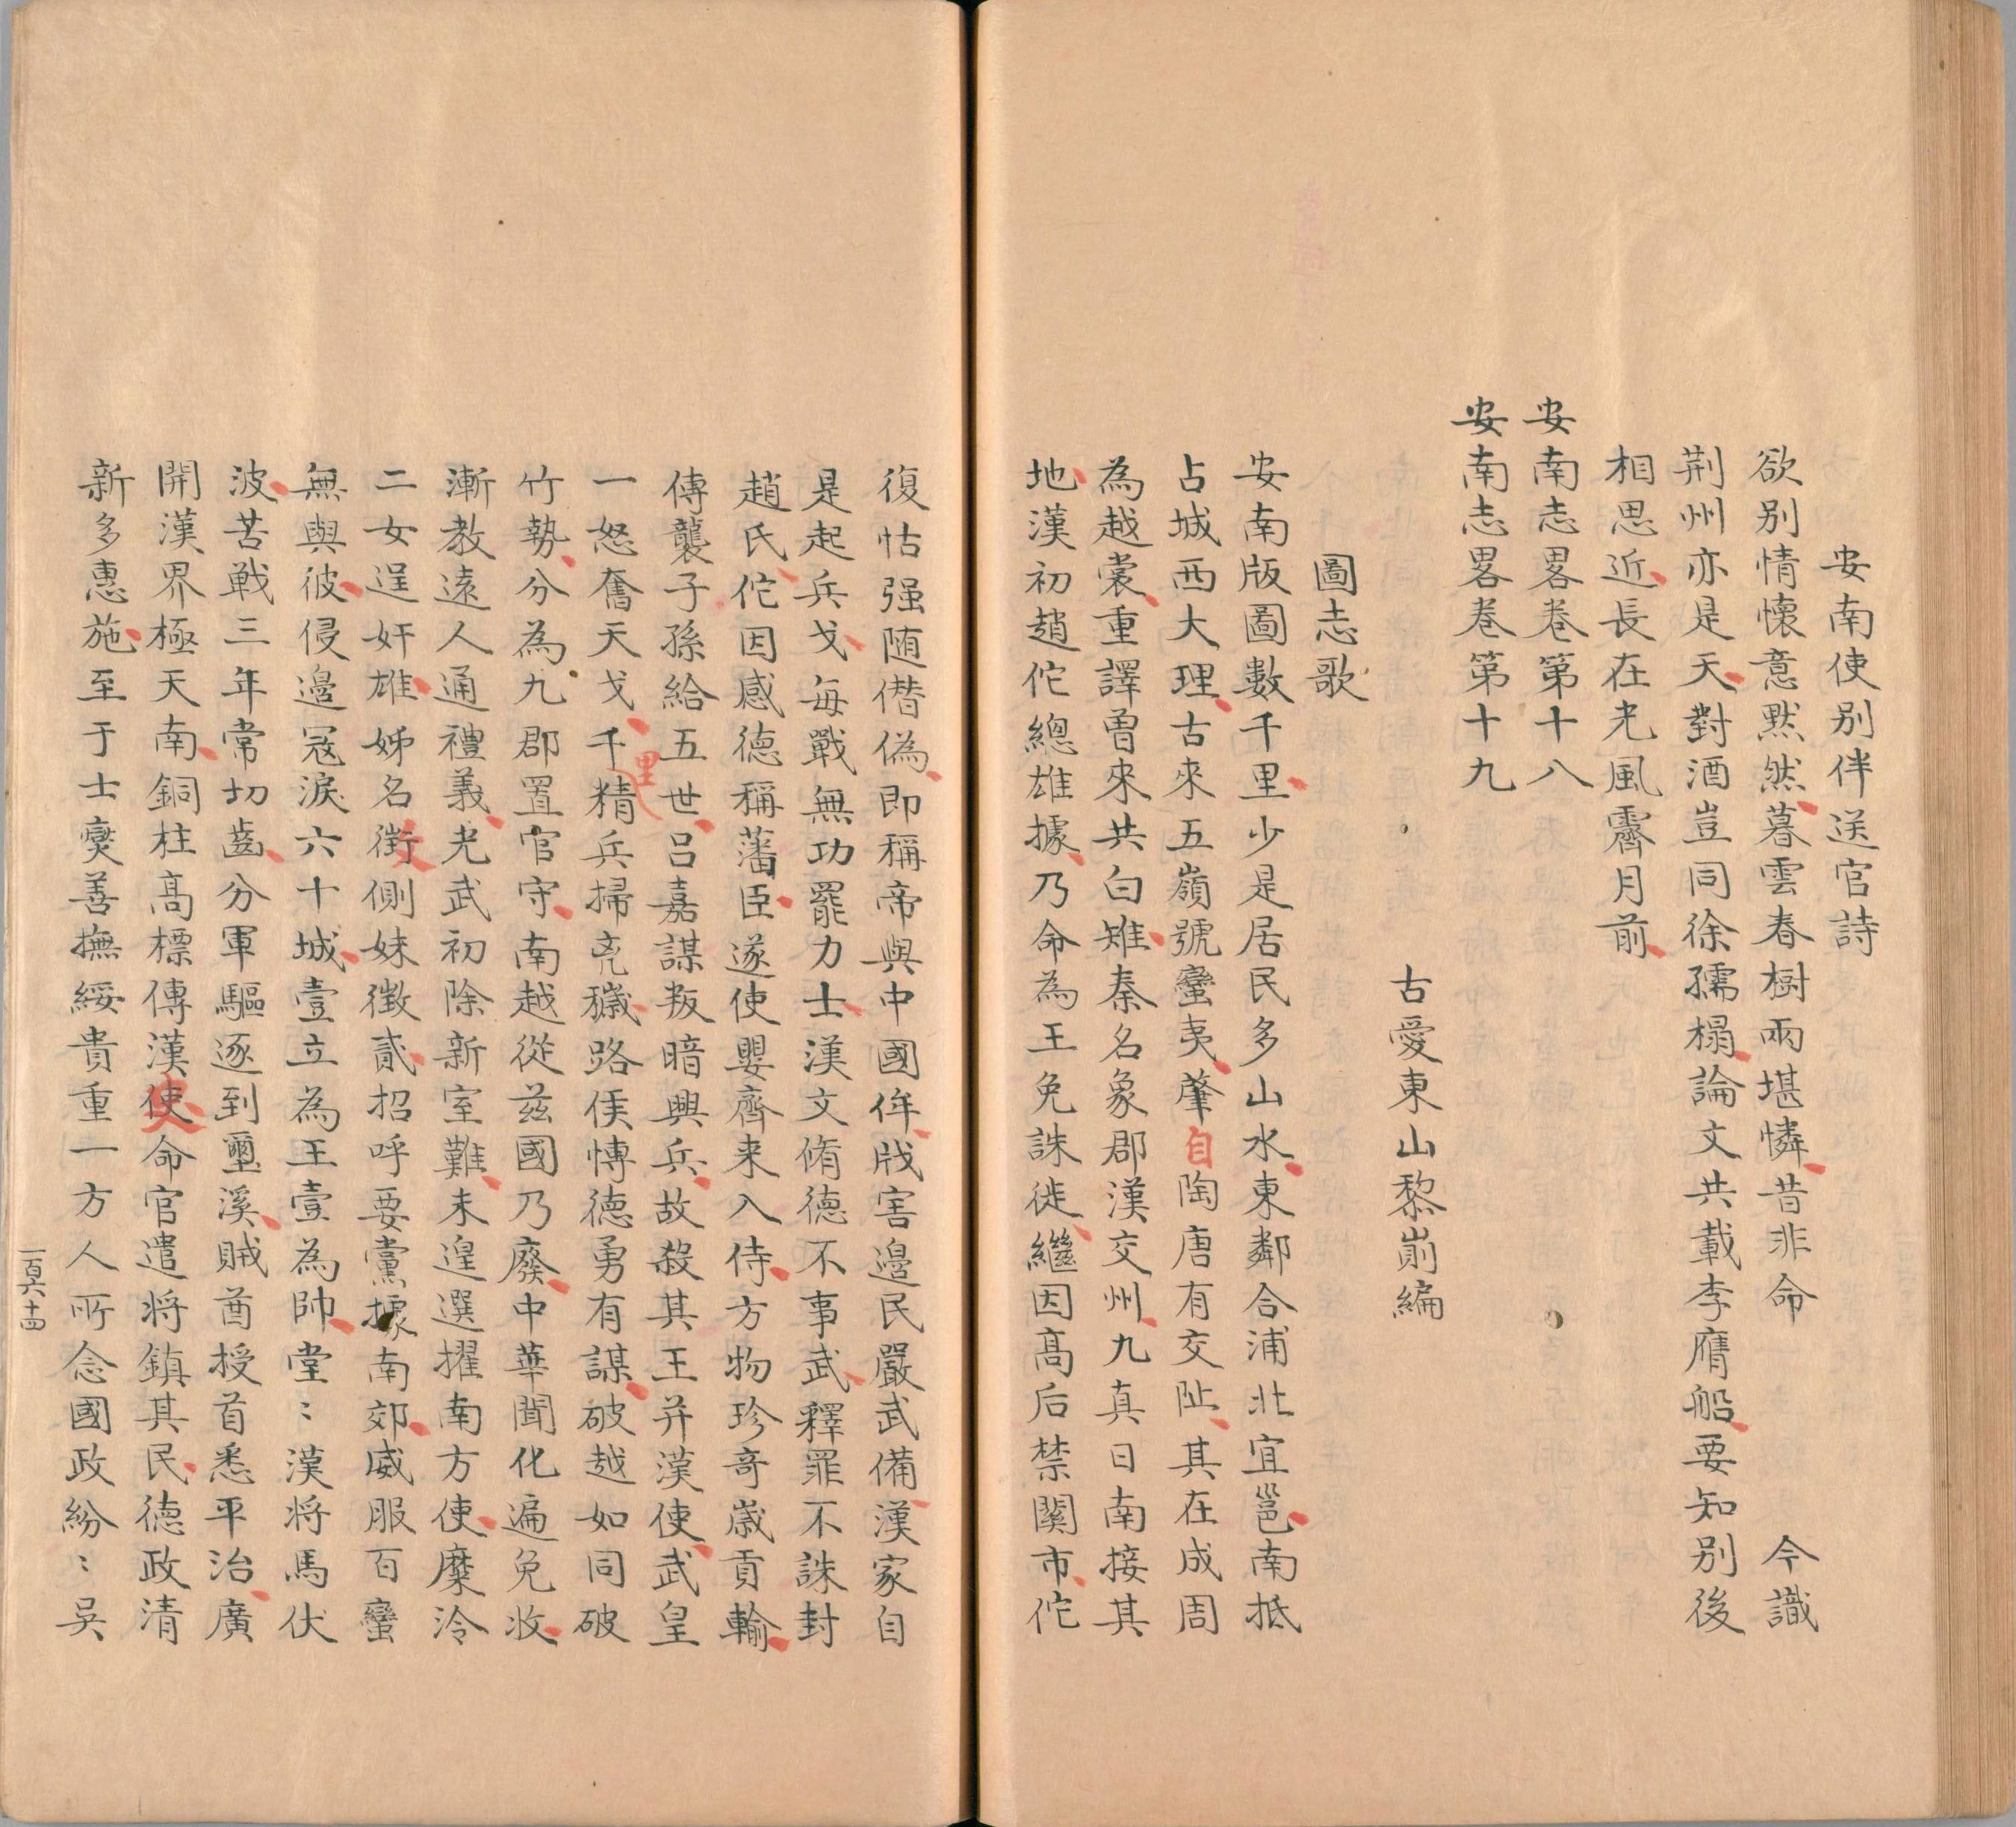 安南使別伴送官詩
欲别情懷意黙然暮雲春樹兩堪憐昔非命 今識
荆州亦是天對酒豈同徐孺榻論文共載李膺船要知别後
相思近長在光風霽月前
安南志畧卷第十八
安南志畧卷第十九
古愛東山黎崱編
圖志歌
安南版圖數千里少是居民多山水東鄰合浦北宜邕南抵
占城西大理古來五嶺號蠻夷肇自陶唐有交阯其在成周
為越裳重譯曾來共白雉秦名象郡漢交州九真日南接其
地漢初趙佗總雄據乃命為王免誅徙繼因高后禁關市佗
復怙强随僣偽即稱帝與中國侔戕害邉民嚴武備漢家自
是起兵戈每戰無功罷力士漢文脩德不事武釋罪不誅封
趙氏佗因感德稱藩臣遂使嬰齊来入侍方物珍奇歲貢輸
傳襲子孫給五世吕嘉謀叛暗興兵故殺其王并漢使武皇
一怒奮天戈千里精兵掃兇穢路侯愽德勇有謀破越如同破
竹勢分為九郡置官守南越從兹國乃廢中華聞化遍免收
漸教遠人通禮義光武初除新室難未遑選擢南方使麊泠
二女逞奸雄姊名徵側妹徵貳招呼要黨據南郊威服百蠻
無與彼侵邉冦淚六十城壹立為王壹為帥堂:漢将馬伏
波苦戰三年常切齒分軍驅逐到璽溪賊酋授首悉平治廣
開漢界極天南銅柱髙標傳漢使命官遣将鎮其民德政清
新多惠施至于士燮善撫綏貴重一方人所念國政紛:吴
一百六十四